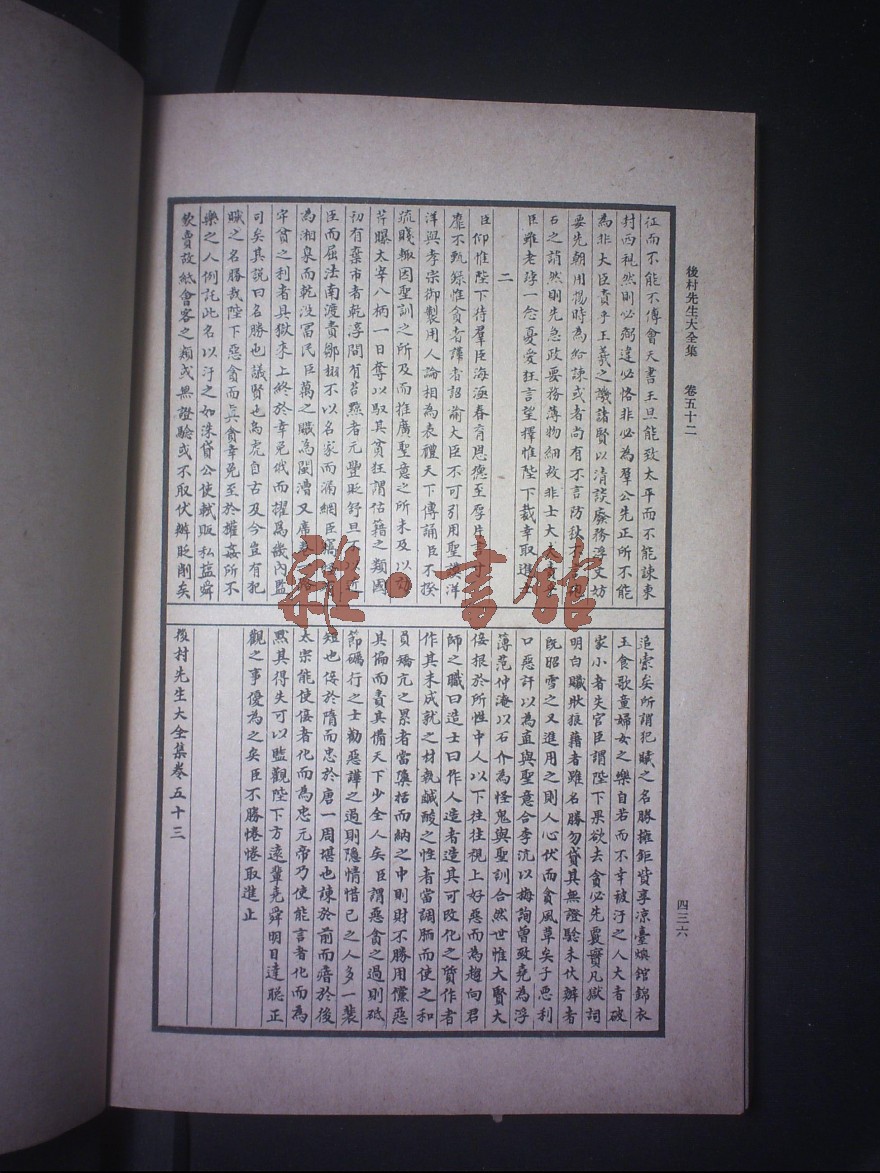 後村先生大全集　卷五十二
四三六
征而不能不傅會天書王旦能致太平而不能諫東
封西祀然則必弼違必恪非必為羣公先正所不能
為非大臣責乎王羲之譏諸賢以清談廢務浮文妨
要先朝用楊時為給諫或者尚有不言防秋
石之誚然則先急政要務薄物細故非士大夫
臣雖老誖一念憂愛狂言望擇惟陛下裁幸取進止
二
臣仰惟陛下待羣臣海涵春育恩德至厚片言寸
靡不甄錄惟貪者譁者詔諭大臣不可引用聖謨洋
洋與孝宗御製用人論相為表禮天下傳誦臣不揆
疏賤輙因聖訓之所及而推廣聖意之所未及以効
芹曝太宰八柄一曰奪以馭其貧狂謂估籍之類國
初有棄市者乾淳間有苔黥者元豐貶舒旦不以近
臣而屈法南渡責鄒栩不以名家而漏網臣竊
為湘臬而乾没冨民巨萬之贓為閩漕又席卷
牢貧之利者具獄來上終於幸免俄而擢爲畿内監
司矣其說曰名勝也議賢也烏虎自古及今豈有犯
贓之名勝哉陛下惡貪而真貪幸免至於權姦所不
樂之人例託此名以汙之如洙貸公使軾販私塩舜
欽賣故紙會客之類或無證驗或不取伏辨貶削矣
追索矣所謂犯贓之名勝擁鉅貲享凉臺燠舘錦衣
玉食歌童婦女之樂自若而不幸被汙之人大者破
家小者失官臣謂陛下果欲去貪必先覈實凡獄詞
明白贓狀狼藉者雖名勝勿貸其無證驗未伏辨者
既昭雪之又進用之則人心伏而貪風草矣子惡利
口惡訐以為直與聖意合李沆以梅詢曾致堯為浮
薄范仲淹以石介為怪鬼與聖訓合然世惟大賢大
佞根於所性中人以下往往視上好惡而為趨向君
師之職曰造士曰作人造者造其可改化之質作者
作其未成就之材執鹹酸之性者當調脜而使之和
負矯亢之累者當檃括而納之中則財不勝用儻惡
其偏而責其備天下少全人矣臣謂惡貪之過則砥
節礪行之士勸惡譁之過則隱情惜己之人多一裴
矩也佞於隋而忠於唐一周堪也諫於前而瘖於後
太宗能使佞者化而為忠元帝乃使能言者化而為
黙其得失可以監觀陛下方遠軰堯舜明目達聦正
觀之事優為之矣臣不勝惓惓取進止
後村先生大全集卷五十三
雜·書館